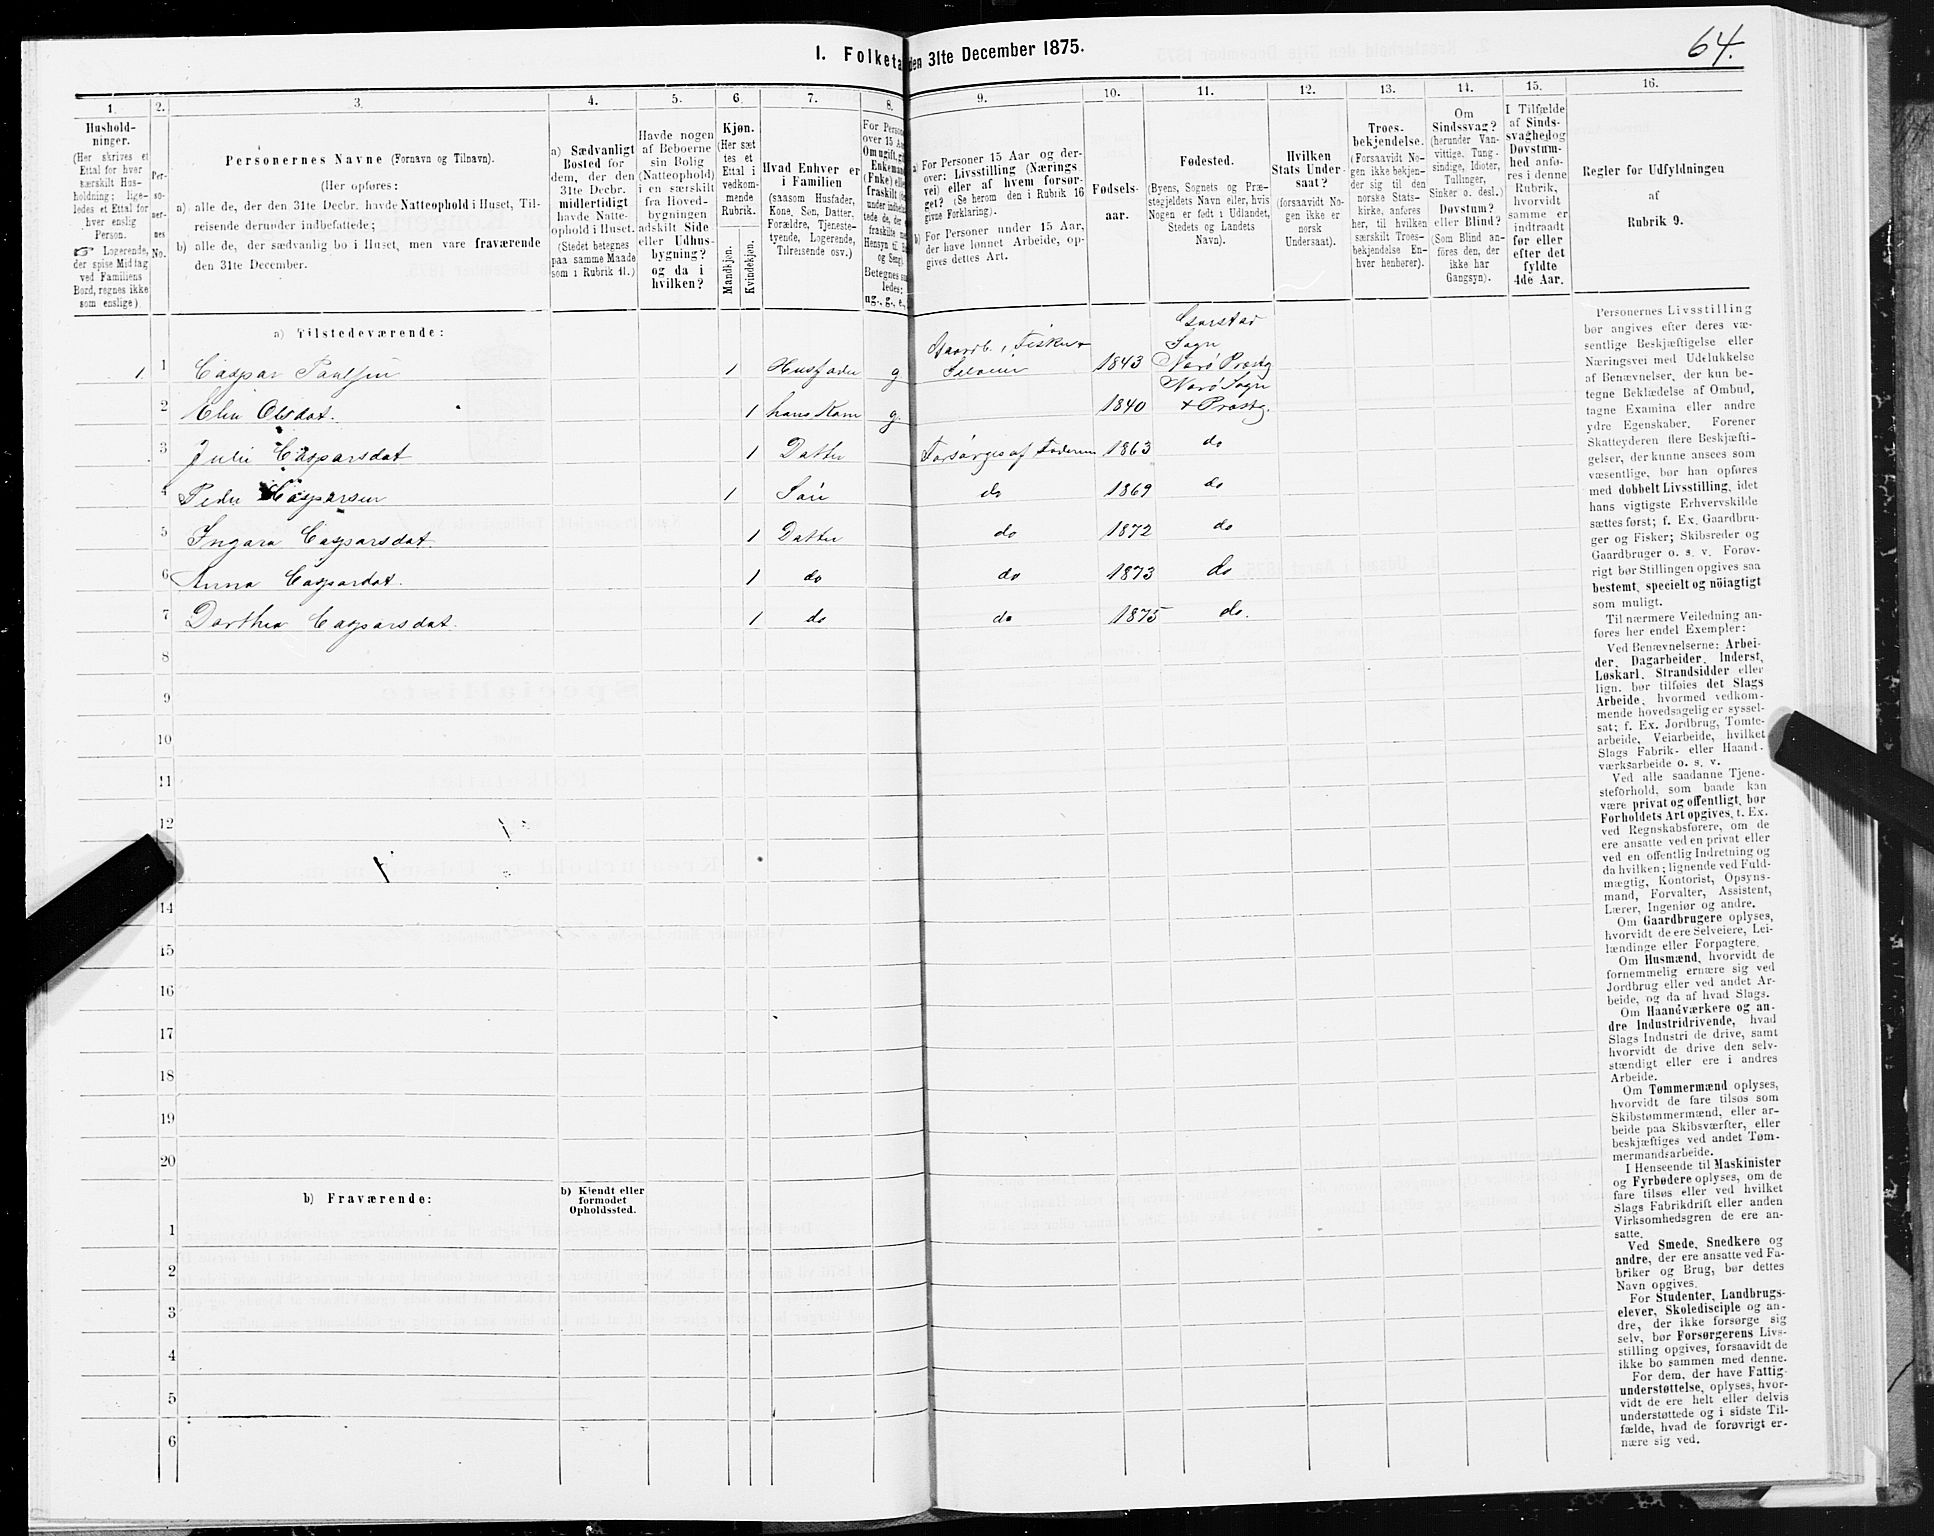 64.
I. Folketa den 31te December 1875.
1. 2. 3. 4. 5. 6. 7. 8. 9. 10. 11. 12. 13. 14. 15. 16.
Hushold-
ninger.
(Her skrives et
Ettal for hver
særskilt Hus-
holdning; lige-
ledes et Ettal for
hver enslig
Person.
☞ Logerende,
der spise Middag
ved Familiens
Bord, regnes ikke
som enslige)
Per-
so-
ner-
nes
No.
Personernes Navne (Fornavn og Tilnavn).
(Her opføres:
a) alle de, der den 31te Decbr. havde Natteophold i Huset, Til-
reisende derunder indbefattede;
b) alle de, der sædvanlig bo i Huset, men vare fraværende
den 31te December.
a) Sædvanligt
Bosted for
dem, der den
31te Decbr.
midlertidigt
havde Natte-
ophold i Huset.
(Stedet betegnes
paa samme Maade
som i Rubrik 11.)
Havde nogen
af Beboerne
sin Bolig
(Natteophold)
i en særskilt
fra Hoved-
bygningen
adskilt Side
eller Udhus-
bygning?
og da i
hvilken?
Kjøn.
(Her sæt
tes et
Ettal i
vedkom-
mende
Rubrik.
Mandkjøn.
Kvindekjøn.
Hvad Enhver er
i Familien
(saasom Husfader,
Kone, Søn, Datter,
Forældre, Tjeneste-
tyende, Logerende,
Tilreisende osv.)
For Persone
over 15 Aar
Om ugift, gift
Enkemand
(Enke) elle
fraskilt (der
under indbefat
tede de, der er
fraskilte med
Hensyn til Bo
og Seng).
Betegnes saa
ledes:
ug., g., e.,
a) For Personer 15 Aar og der-
over: Livsstilling (Nærings
vei) eller af hvem forsør-
get? (Se herom den i Rubrik 16
givne Forklaring).
b) For Personer under 15 Aar,
der have lønnet Arbeide, op-
gives dettes Art.
Fødsels-
aar.
Fødested.
(Byens, Sognets og Præ-
stegjeldets Navn eller, hvis
Nogen er født i Udlandet,
Stedets og Landets
Navn).
Hvilken
Stats Under-
saat?
(forsaavidt No-
gen ikke er
norsk
Undersaat).
Troes-
bekjendelse.
(Forsaavidt No-
gen ikke bekjen-
der sig til den
norske Stats-
kirke, anføres
her, til hvilken
særskilt Troes-
bekjendelse En-
hver henhører).
Om
Sindssvag?
(herunder Van-
vittige, Tung-
sindige, Idioter,
Tullinger,
Sinker o. desl.)
Døvstum?
eller Blind?
(Som Blind an-
føres den, der
ikke har
Gangsyn).
I Tilfælde
af Sinds-
svaghed og
Døvstum-
hed anfø-
res i denne
Rubrik,
hvorvidt
samme er
indtraadt
før eller
efter det
fyldte
4de Aar.
Regler for Udfyldningen
af
Rubrik 9.
a) Tilstedeværende:
1. 1 Caspar Paulsen 1 Husfader g Gaardb., Fisker + Seleier 1843 Garstad Sogn Nærø Præstg
2 Elen Olsdat. 1 hans Kone g. 1840 Nærø Sogn + Præstg.
3 Julie Casparsdat 1 Datter Forsørges af Faderen 1863 do
4 Peder Casparsen 1 Søn do 1869 do
5 Ingara Casparsdat. 1 Datter do 1872 do
6 Anna Caspardat. 1 do do 1873 do
7 Dorthea Casparsdat. 1 do do 1875 do.
8
9
10
11
12
14
15
16
17
18
19
20
b) Fraværende:
b) Kjendt eller
formodet
Opholdssted.
1
2
3
4
5
6
Personernes Livsstilling
bør angives efter deres væ-
sentlige Beskjæftigelse eller
Næringsvei med Udelukkelse
af Benævnelser, der kun be-
tegne Beklædelse af Ombud,
tagne Examina eller andre
ydre Egenskaber. Forener
Skatteyderen flere Beskjæfti-
gelser, der kunne ansees som
væsentlige, bør han opføres
med dobbelt Livsstilling, idet
hans vigtigste Erhvervskilde
sættes først; f. Ex. Gaardbru-
ger og Fisker; Skibsreder og
Gaardbruger o. s. v. Forøv-
rigt bør Stillingen opgives saa
bestemt, specielt og nöiagtigt
som muligt.
Til nærmere Veiledning an-
føres her endel Exempler:
Ved Benævnelserne: Arbei-
der, Dagarbeider, Inderst,
Løskarl, Strandsidder eller
lign. bør tilføies det Slags
Arbeide, hvormed vedkom-
mende hovedsagelig er syssel-
sat; f. Ex. Jordbrug, Tomte-
arbeide, Veiarbeide, hvilket
Slags Fabrik- eller Haand-
værksarbeide o. s. v.
Ved alle saadanne Tjene-
steforhold, som baade kan
være privat og offentligt, bør
Forholdets Art opgives, t. Ex.
ved Regnskabsførere, om de
ere ansatte ved en privat eller
ved en offentlig Indretning og
da hvilken; lignende ved Fuld-
mægtig, Kontorist, Opsyns-
mand, Forvalter, Assistent,
Lærer, Ingeniør og andre.
Om Gaardbrugere oplyses,
hvorvidt de ere Selveiere, Lei-
lændinge eller Forpagtere.
Om Husmænd, hvorvidt de
fornemmelig ernære sig ved
Jordbrug eller ved andet Ar-
beide, og da af hvad Slags.
Om Haandværkere og an-
dre Industridrivende, hvad
Slags Industri de drive, samt
hvorvidt de drive den selv-
stændigt eller ere i andres
Arbeide.
Om Tømmermænd oplyses,
hvorvidt de fare tilsøs som
Skibstømmermænd, eller ar-
beide paa Skibsværfter, eller
beskjæftiges ved andet Tøm-
mermandsarbeide.
I Henseende til Maskinister
og Fyrbødere oplyses, om de
fare tilsøs eller ved hvilket
Slags Fabrikdrift eller anden
Virksomhedsgren de ere an-
satte.
Ved Smede, Snedkere og
andre, der ere ansatte ved Fa-
briker og Brug, bør dettes
Navn opgives.
For Studenter, Landbrugs-
elever, Skoledisciple og an-
dre, der ikke forsørge sig
selv, bør Forsørgerens Livs-
stilling opgives, forsaavidt de
ikke bo sammen med denne.
For dem, der have Fattig-
understøttelse, oplyses, hvor-
vidt de ere helt eller delvis
understøttede og i sidste Til-
fælde, hvad de forøvrigt er-
nære sig ved.